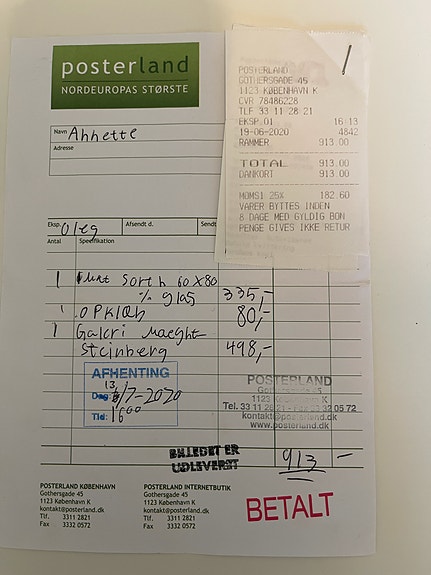 posterland
NORDEUROPAS STØRSTE
POSTERLAND
GOTHERSGADE 45
1123 KØBENHAVN K
CVR 78486228
TLF 33 11 28 21
EKSP.01 16:13
19-06-2020 4842
RAMMER 913.00
TOTAL 913.00
DANKORT 913.00
MOMS1 25% 182.60
VARER BYTTES INDEN
8 DAGE MED GYLDIG BON
PENGE GIVES IKKE RETUR
Navn Annette
Adresse
Eksp. Oleg Afsendt d. Sendt
Antal Specifikation
1 Sort 60x80
% glas 335,-
1 opklæb 80,-
1 Galleri Maeght
Steinberg 498,-
AFHENTING
Dag: 13/7-2020
Tid: 16 00
POSTERLAND
Gothersgade 45
1123 København K
Tel. 33 11 28 21 - Fax 33 32 05 72
kontakt@posterland.dk
www.posterland.dk
BILLEDET ER
UDLEVERET
913 -
BETALT
POSTERLAND KØBENHAVN
Gothersgade 45
1123 København K
kontakt@posterland.dk
Tlf. 3311 2821
Fax 3332 0572
POSTERLAND INTERNETBUTIK
Gothersgade 45
1123 København K
kontakt@posterland.dk
Tlf. 3311 2821
Fax 3332 0572